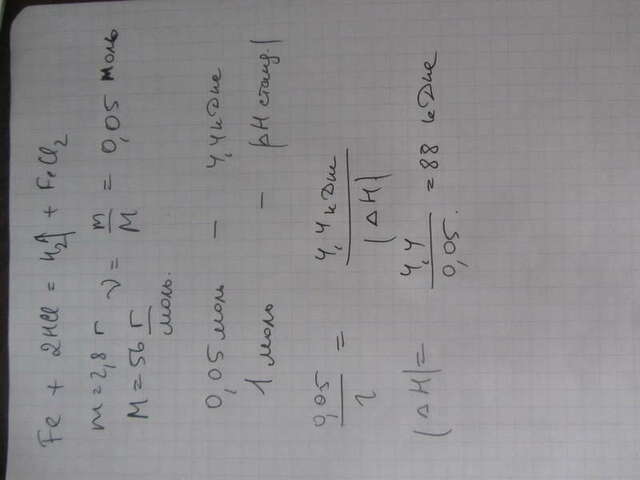 Fe + 2HCl = H2↑ + FeCl2
m = 2,8 г ν = m/M = 0,05 моль
M = 56 г/моль.
0,05 моль – 4,4 кДже
1 моль – |ΔH станд.|
0,05/1 = 4,4 кДже/|ΔH|
|ΔH| = 4,4/0,05. = 88 кДже